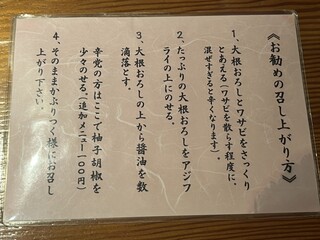 《お勧めの召し上がり方》
1、大根おろしとワサビをさっくり
とあえる（ワサビを散らす程度に、
混ぜすぎると辛くなります）。
2、たっぷりの大根おろしをアジフ
ライの上にのせる。
3、大根おろしの上から醤油を数
滴落とす。
辛党の方はここで柚子胡椒を
少々のせる。（追加メニュー100円）
4、そのままかぶりつく様にお召し
上がり下さい。